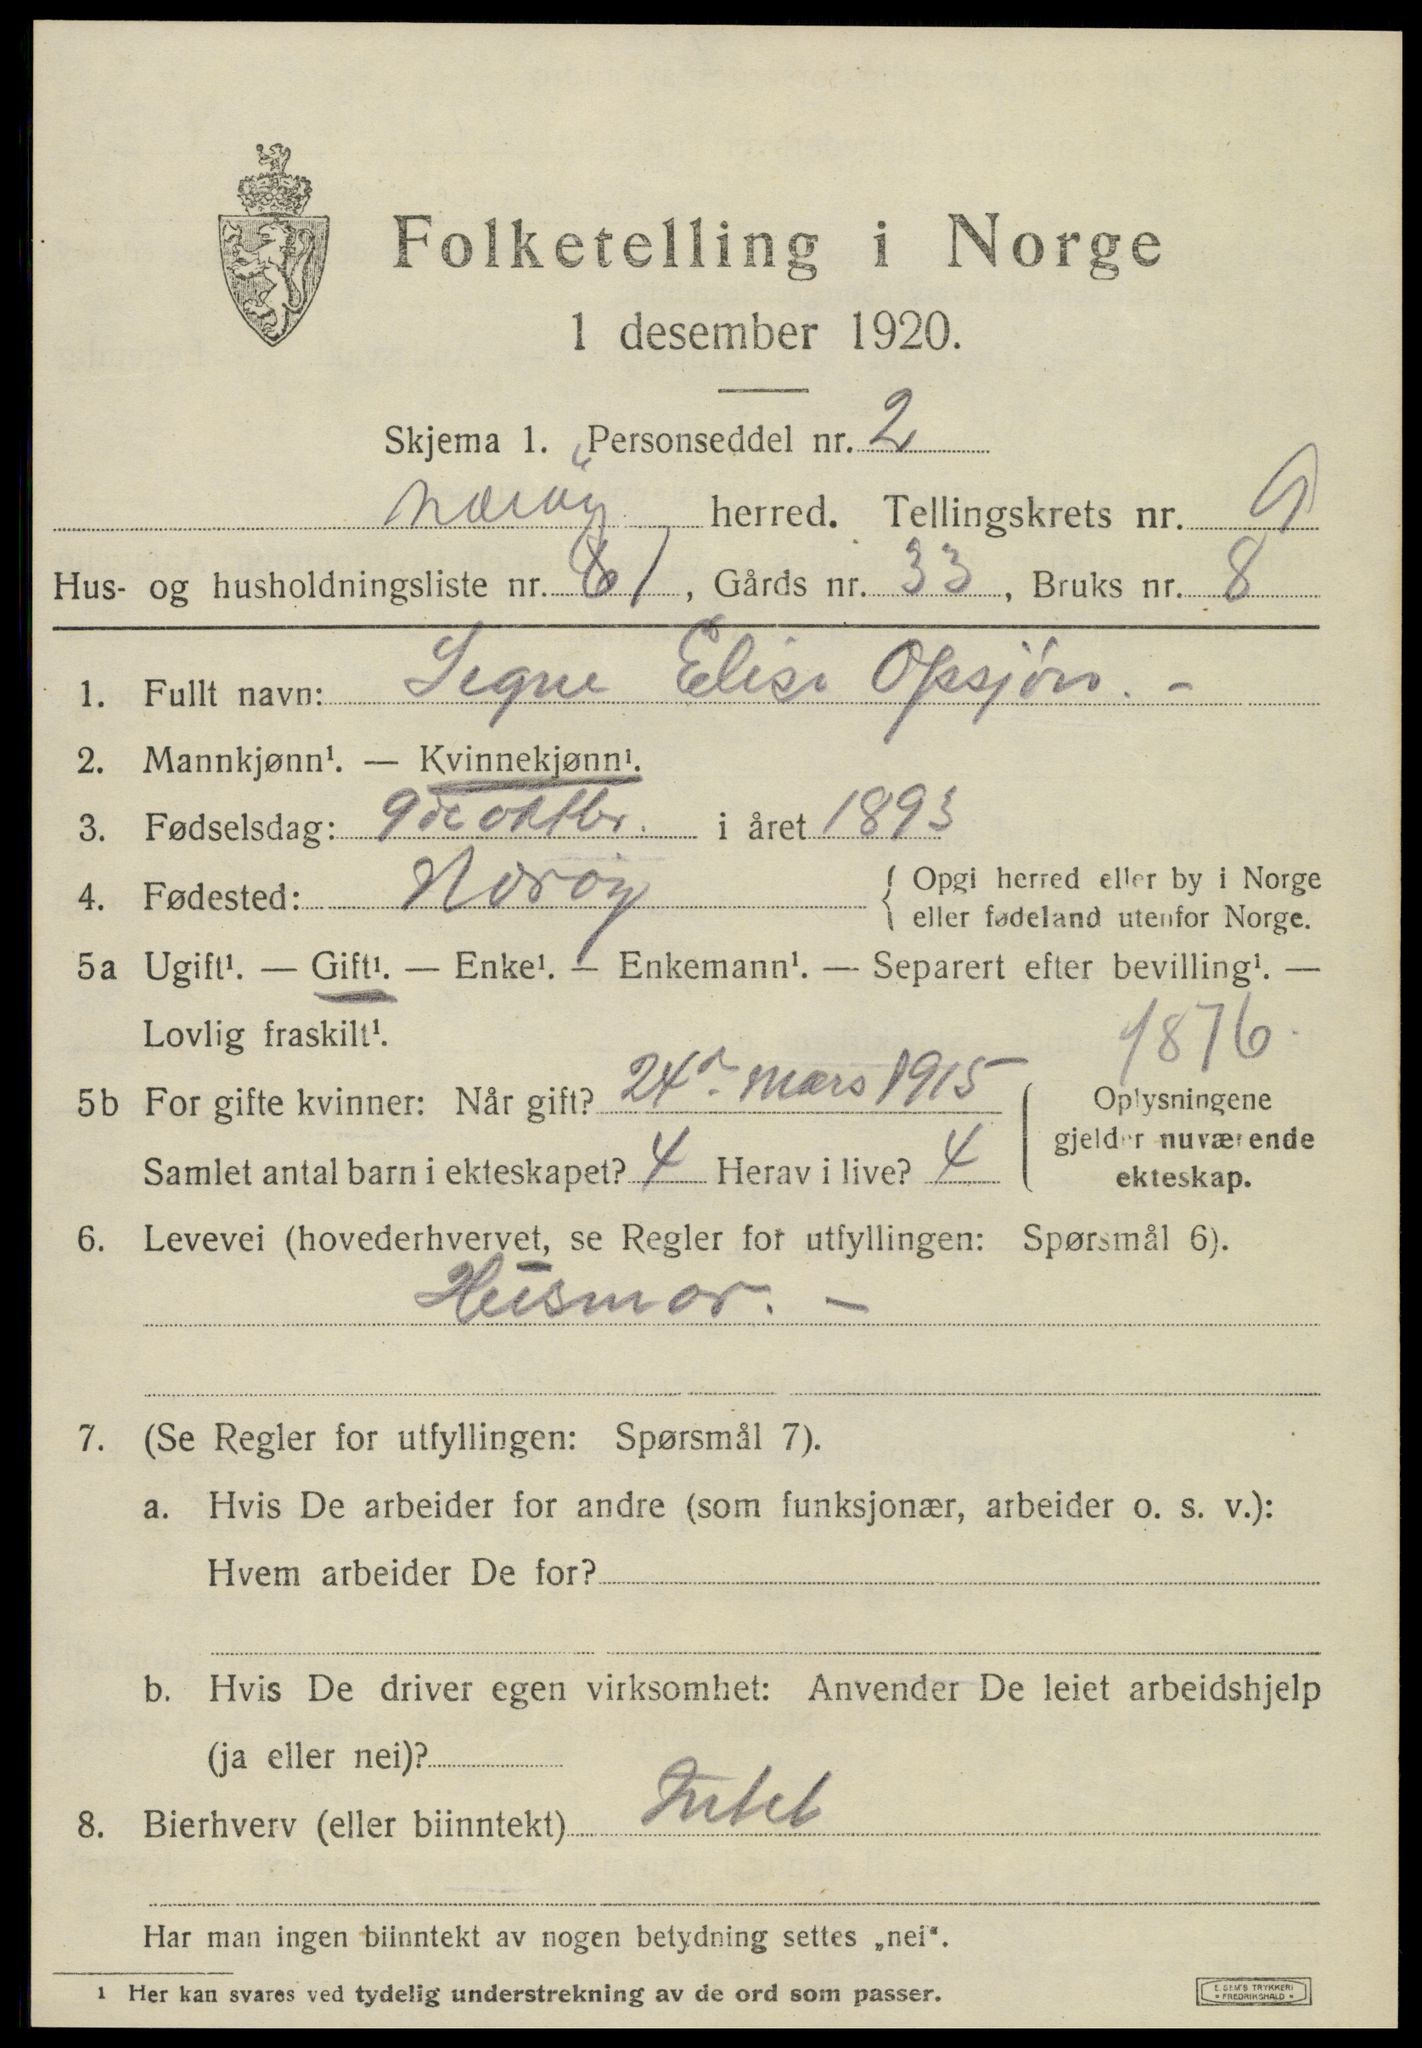 Folketelling i Norge
1 desember 1920.
Skjema 1. Personseddel nr. 2
Nærøy herred. Tellingskrets nr. 9
Hus- og husholdningsliste nr. 81, Gårds nr. 33, Bruks nr. 8
1. Fullt navn: Signe Elise Opsjön. -
2. Mannkjønn¹. — Kvinnekjønn¹.
3. Fødselsdag: 9de oktbr. i året 1893
4. Fødested: Nærøy { Opgi herred eller by i Norge
eller fødeland utenfor Norge.
5a Ugift¹. — Gift¹. — Enke¹. — Enkemann¹. — Separert efter bevilling¹. —
Lovlig fraskilt¹.
1876.
5b For gifte kvinner: Når gift? 24d. mars 1915
Samlet antal barn i ekteskapet? 4 Herav i live? 4
Oplysningene
gjelder nuværende
ekteskap.
6. Levevei (hovederhvervet, se Regler for utfyllingen: Spørsmål 6).
Husmor. -
7. (Se Regler for utfyllingen: Spørsmål 7).
a. Hvis De arbeider for andre (som funksjonær, arbeider o. s. v.):
Hvem arbeider De for?
b. Hvis De driver egen virksomhet: Anvender De leiet arbeidshjelp
(ja eller nei)?
8. Bierhverv (eller biinntekt) Intet
Har man ingen biinntekt av nogen betydning settes „nei“.
¹ Her kan svares ved tydelig understrekning av de ord som passer.
E. SEM'S TRYKKERI
FREDRIKSHALD